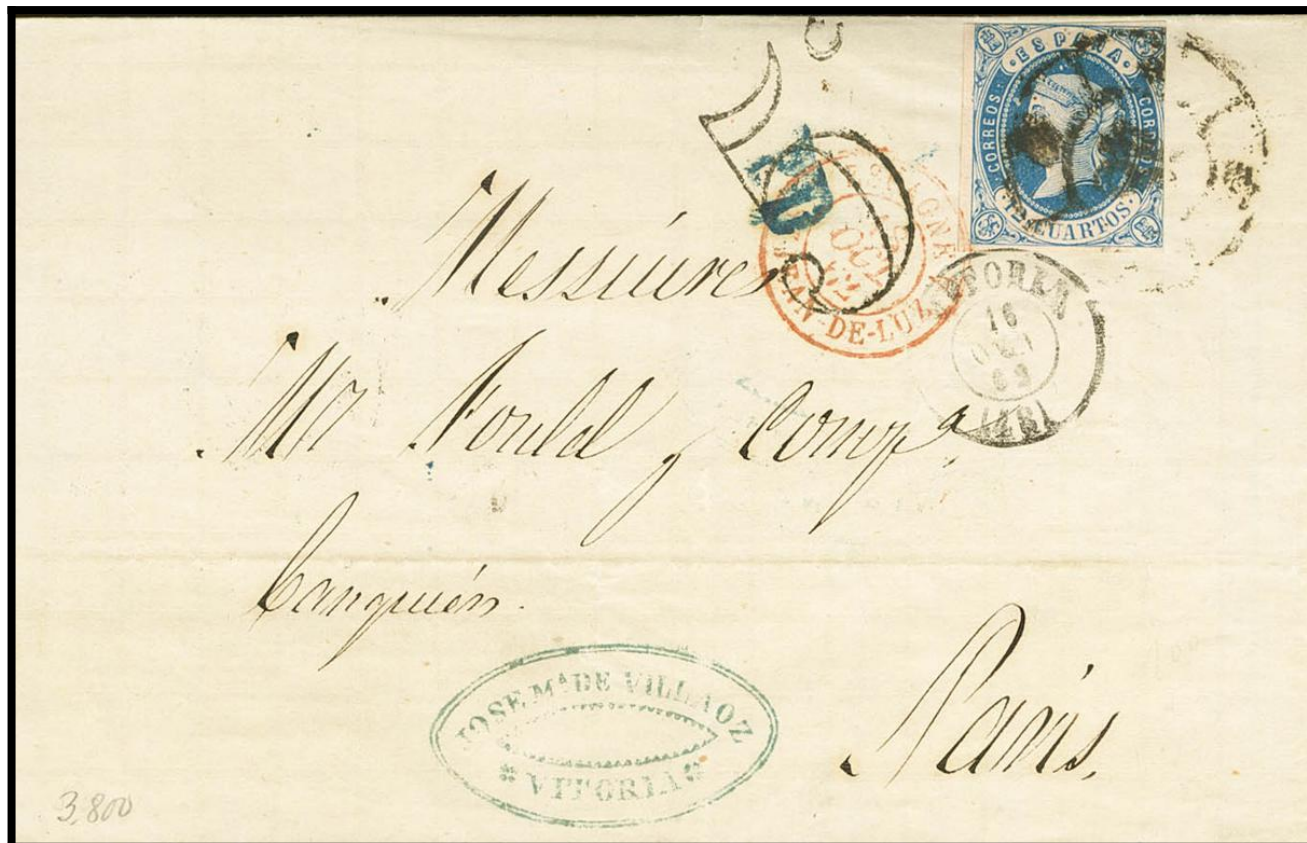 ESPAÑA
CORREOS CORREOS
12 CUARTOS
5
ESPAGNE
OCT
ST JEAN-DE-LUZ
VITORIA
16
OCT
62
(48)
Messieures
Mr Fould y Compª
Banquiérs
Paris.
JOSE Mª DE VILLAOZ
VITORIA
3,800